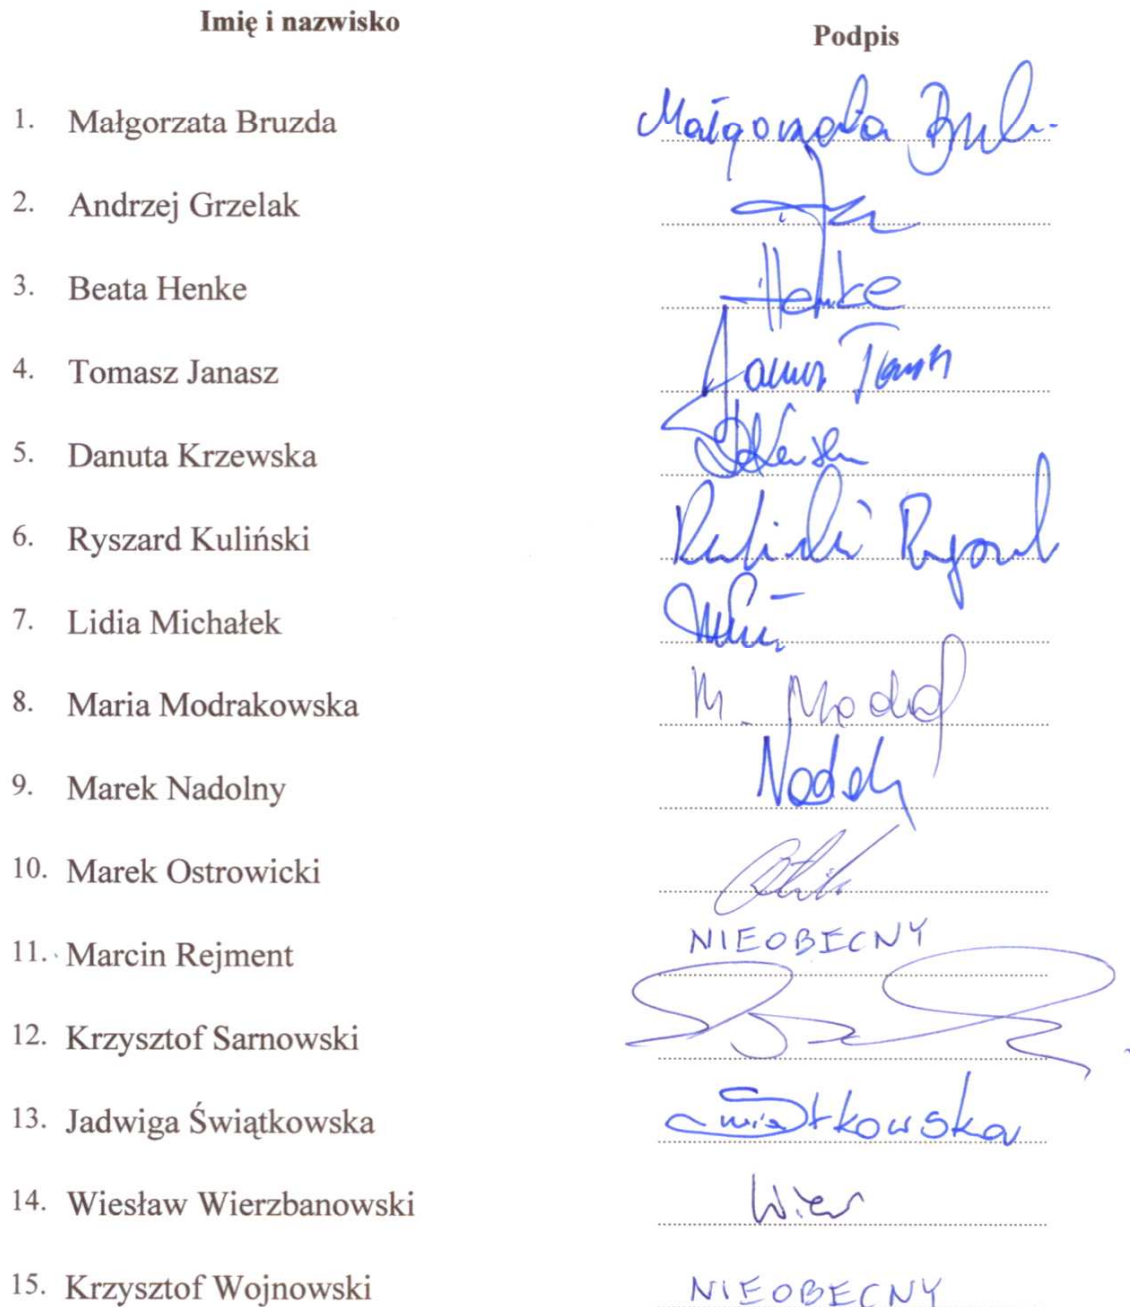 Imię i nazwisko Podpis
1. Małgorzata Bruzda Małgorzata
2. Andrzej Grzelak
3. Beata Henke Henke
4. Tomasz Janasz
5. Danuta Krzewska
6. Ryszard Kuliński
7. Lidia Michałek
8. Maria Modrakowska M.
9. Marek Nadolny
10. Marek Ostrowicki
11. Marcin Rejment NIEOBECNY
12. Krzysztof Sarnowski
13. Jadwiga Świątkowska Świątkowska
14. Wiesław Wierzbanowski Wier
15. Krzysztof Wojnowski NIEOBECNY